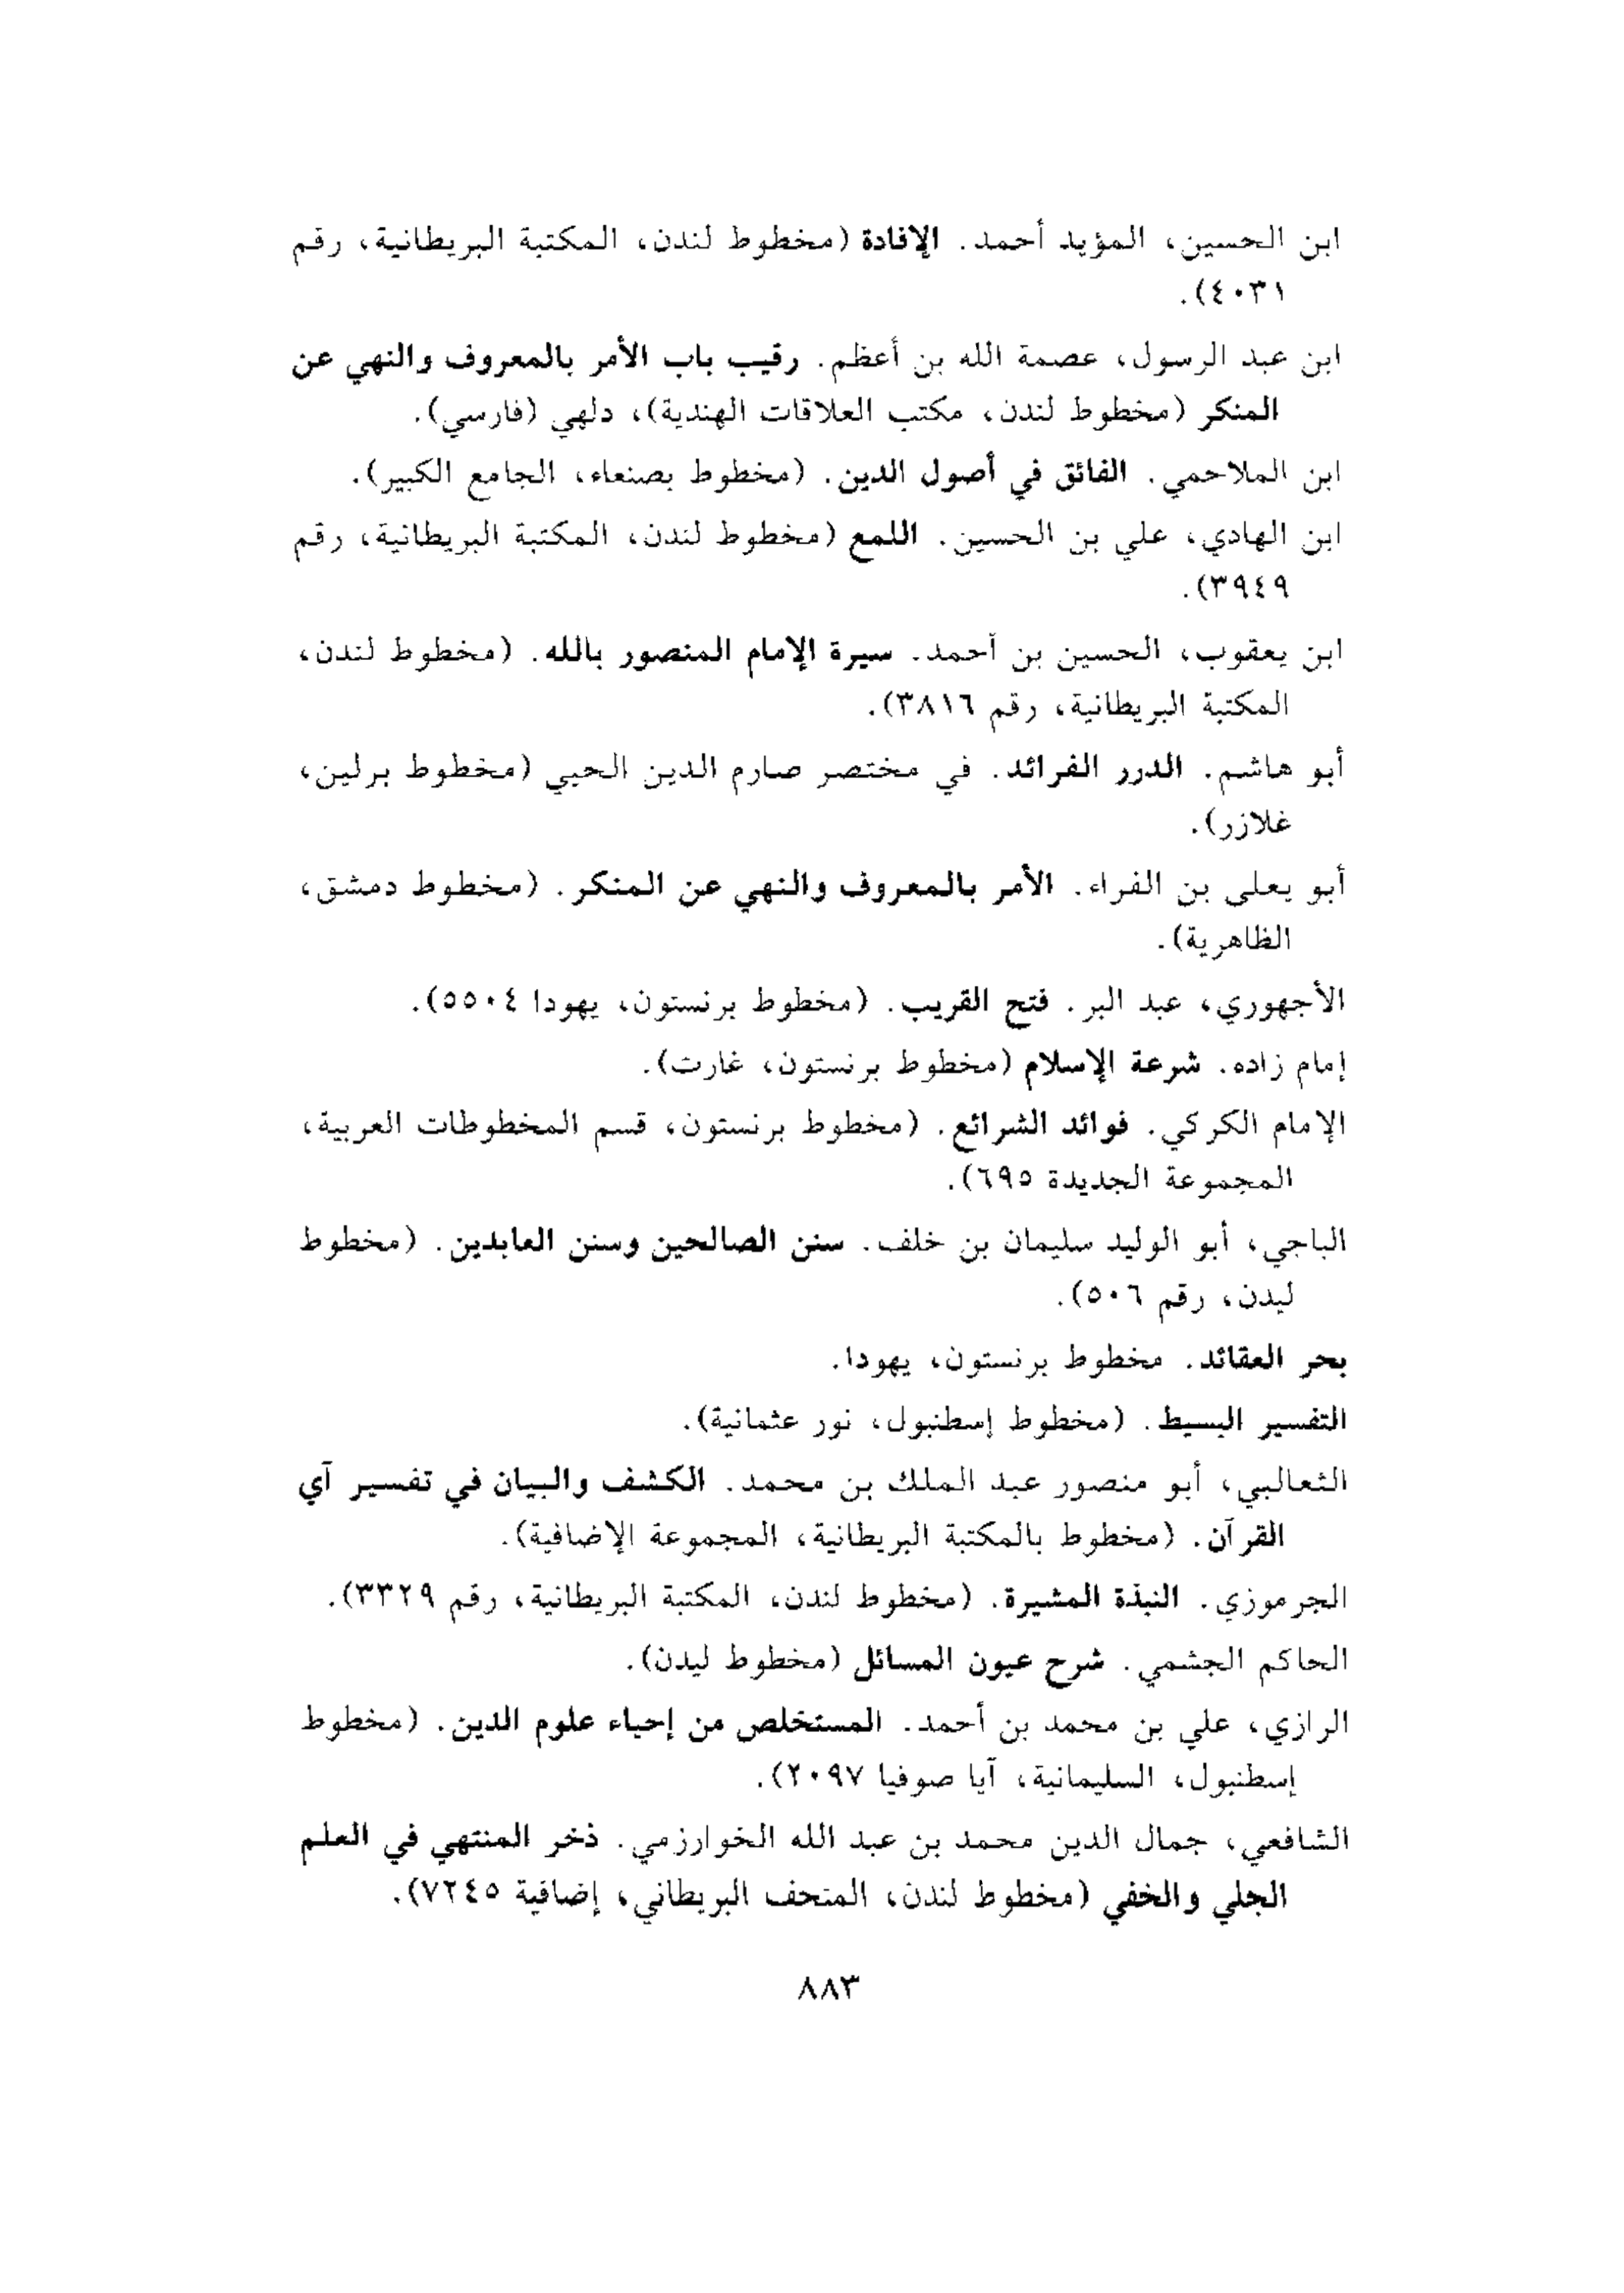 ابن الحسين، المؤيد أحمد. الإفادة (مخطوط لندن، المكتبة البريطانية، رقم
٤٠٣١).
ابن عبد الرسول، عصمة الله بن أعظم. رقيب باب الأمر بالمعروف والنهي عن
المنكر (مخطوط لندن، مكتب العلاقات الهندية)، دلهي (فارسي).
ابن الملاحمي. الفائق في أصول الدين. (مخطوط بصنعاء، الجامع الكبير).
ابن الهادي، علي بن الحسين. اللمع (مخطوط لندن، المكتبة البريطانية، رقم
٣٩٤٩).
ابن يعقوب، الحسين بن أحمد. سيرة الإمام المنصور بالله. (مخطوط لندن،
المكتبة البريطانية، رقم ٣٨١٦).
أبو هاشم. الدرر الفرائد. في مختصر صارم الدين الحيي (مخطوط برلين،
غلازر).
أبو يعلى بن الفراء. الأمر بالمعروف والنهي عن المنكر. (مخطوط دمشق،
الظاهرية).
الأجهوري، عبد البر. فتح القريب. (مخطوط برنستون، يهودا ٥٥٠٤).
إمام زاده. شرعة الإسلام (مخطوط برنستون، غارت).
الإمام الكركي. فوائد الشرائع. (مخطوط برنستون، قسم المخطوطات العربية،
المجموعة الجديدة ٦٩٥).
الباجي، أبو الوليد سليمان بن خلف. سنن الصالحين وسنن العابدين. (مخطوط
ليدن، رقم ٥٠٦).
بحر العقائد. مخطوط برنستون، يهودا.
التفسير البسيط. (مخطوط إسطنبول، نور عثمانية).
الثعالبي، أبو منصور عبد الملك بن محمد. الكشف والبيان في تفسير آي
القرآن. (مخطوط بالمكتبة البريطانية، المجموعة الإضافية).
الجرموزي. النبذة المشيرة. (مخطوط لندن، المكتبة البريطانية، رقم ٣٣٢٩).
الحاكم الجشمي. شرح عيون المسائل (مخطوط ليدن).
الرازي، علي بن محمد بن أحمد. المستخلص من إحياء علوم الدين. (مخطوط
إسطنبول، السليمانية، آيا صوفيا ٢٠٩٧).
الشافعي، جمال الدين محمد بن عبد الله الخوارزمي. ذخر المنتهي في العلم
الجلي والخفي (مخطوط لندن، المتحف البريطاني، إضافية ٧٢٤٥).
٨٨٣